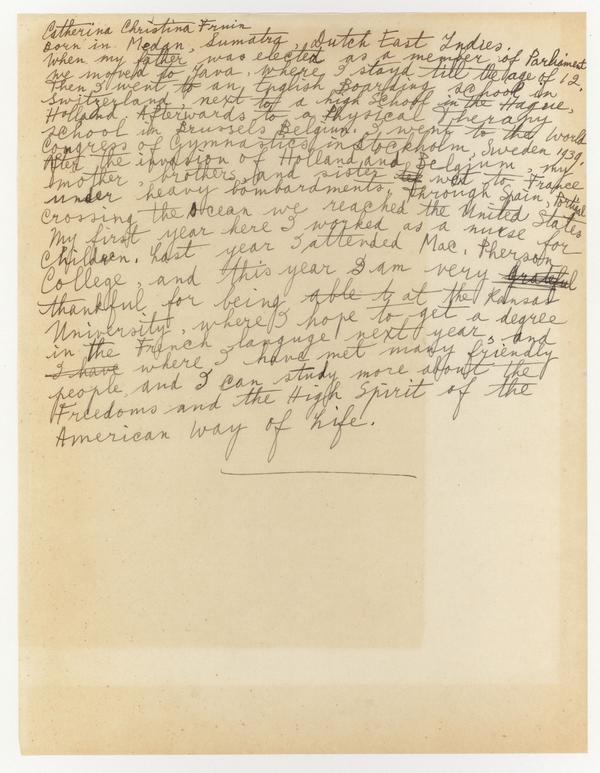 Catherina Christina Fruin
Born in Medan, Sumatra, Dutch East Indies.
When my father was elected as a member of Parliament
we moved to Java, where I stayd till the age of 12.
Then I went to an English Boarding school in
Switzerland, next to a high School in the Hague,
Holland Afterwards to a Physical Therapy
School in Brussels Belgium. I went to the World
Congress of Gymnastics in Stockholm, Sweden 1939.
After the invasion of Holland and Belgium, my
mother brothers, and sister went to France
under heavy bombardments, through Spain, Portugal
crossing the Ocean we reached the United States
My first year here I worked as a nurse for
Children. Last year I attended Mac. Pherson
College, and this year I am very grateful
thankful for being able to at the Kansas
University, where I hope to get a degree
in the French languge next year, and
I have where I have met many friendly
people and I can study more about the
Freedoms and the High Spirit of the
American Way of Life.